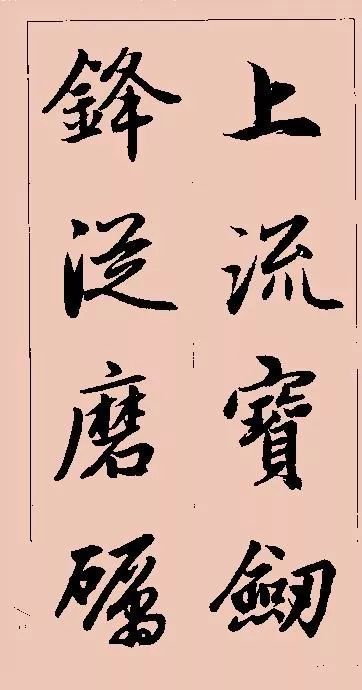 上流寶劒
鋒從磨礪